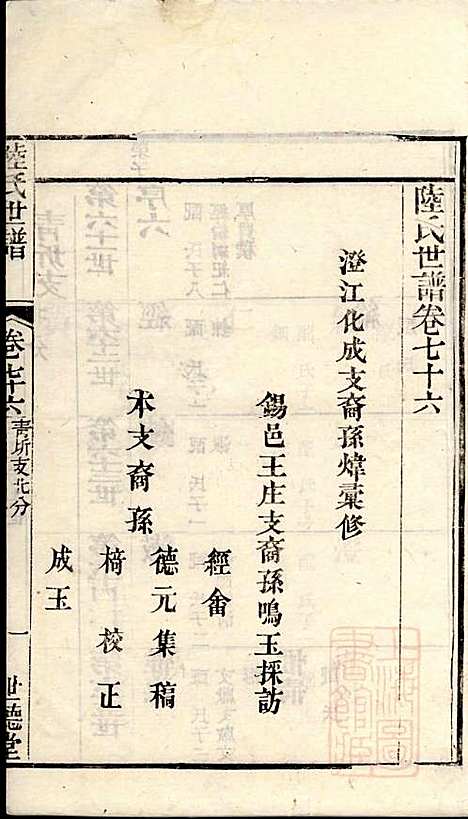 陸氏世譜卷七十六
澄江化成支裔孫煒彙修
錫邑王庄支裔孫鳴玉採訪
經畬
本支裔孫德元集稿
椅校正
成玉
陸氏世譜
卷七十六
青圻支北分
一
世德堂